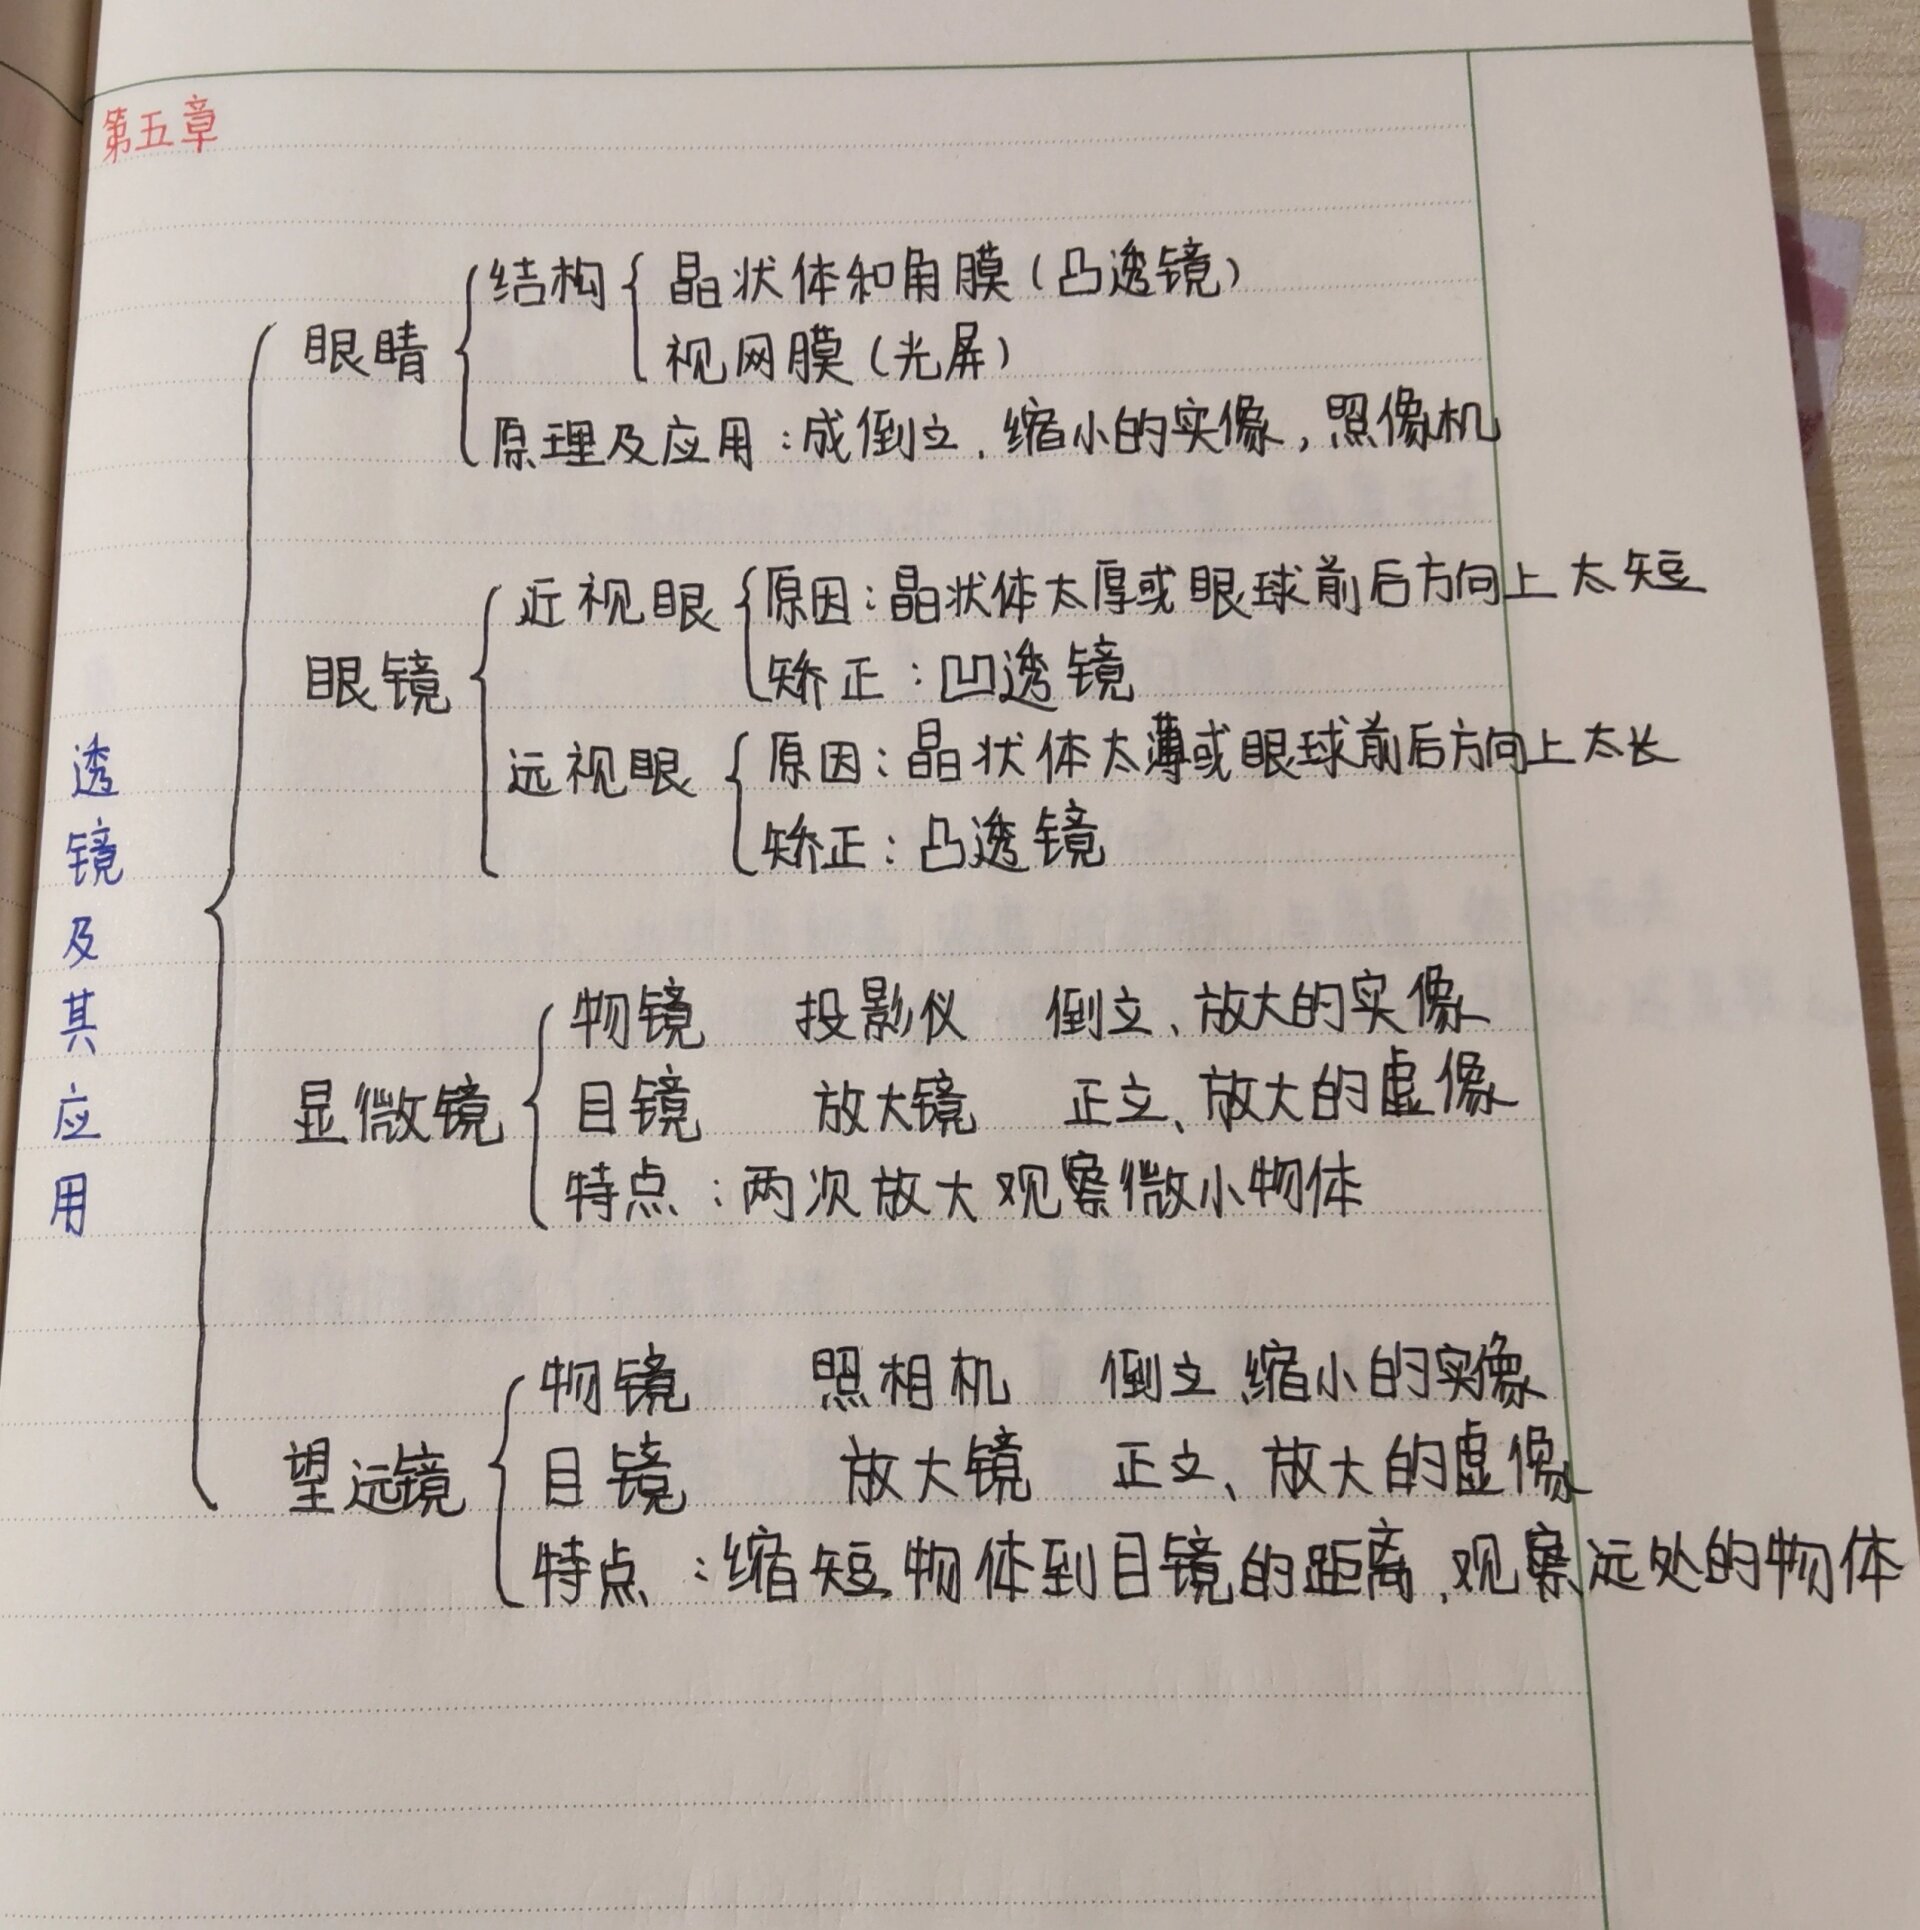 第五章
透镜及其应用
眼睛
结构
晶状体和角膜(凸透镜)
视网膜(光屏)
原理及应用:成倒立、缩小的实像,照像机
眼镜
近视眼
原因:晶状体太厚或眼球前后方向上太短
矫正:凹透镜
远视眼
原因:晶状体太薄或眼球前后方向上太长
矫正:凸透镜
显微镜
物镜 投影仪 倒立、放大的实像
目镜 放大镜 正立、放大的虚像
特点:两次放大观察微小物体
望远镜
物镜 照相机 倒立、缩小的实像
目镜 放大镜 正立、放大的虚像
特点:缩短物体到目镜的距离,观察远处的物体